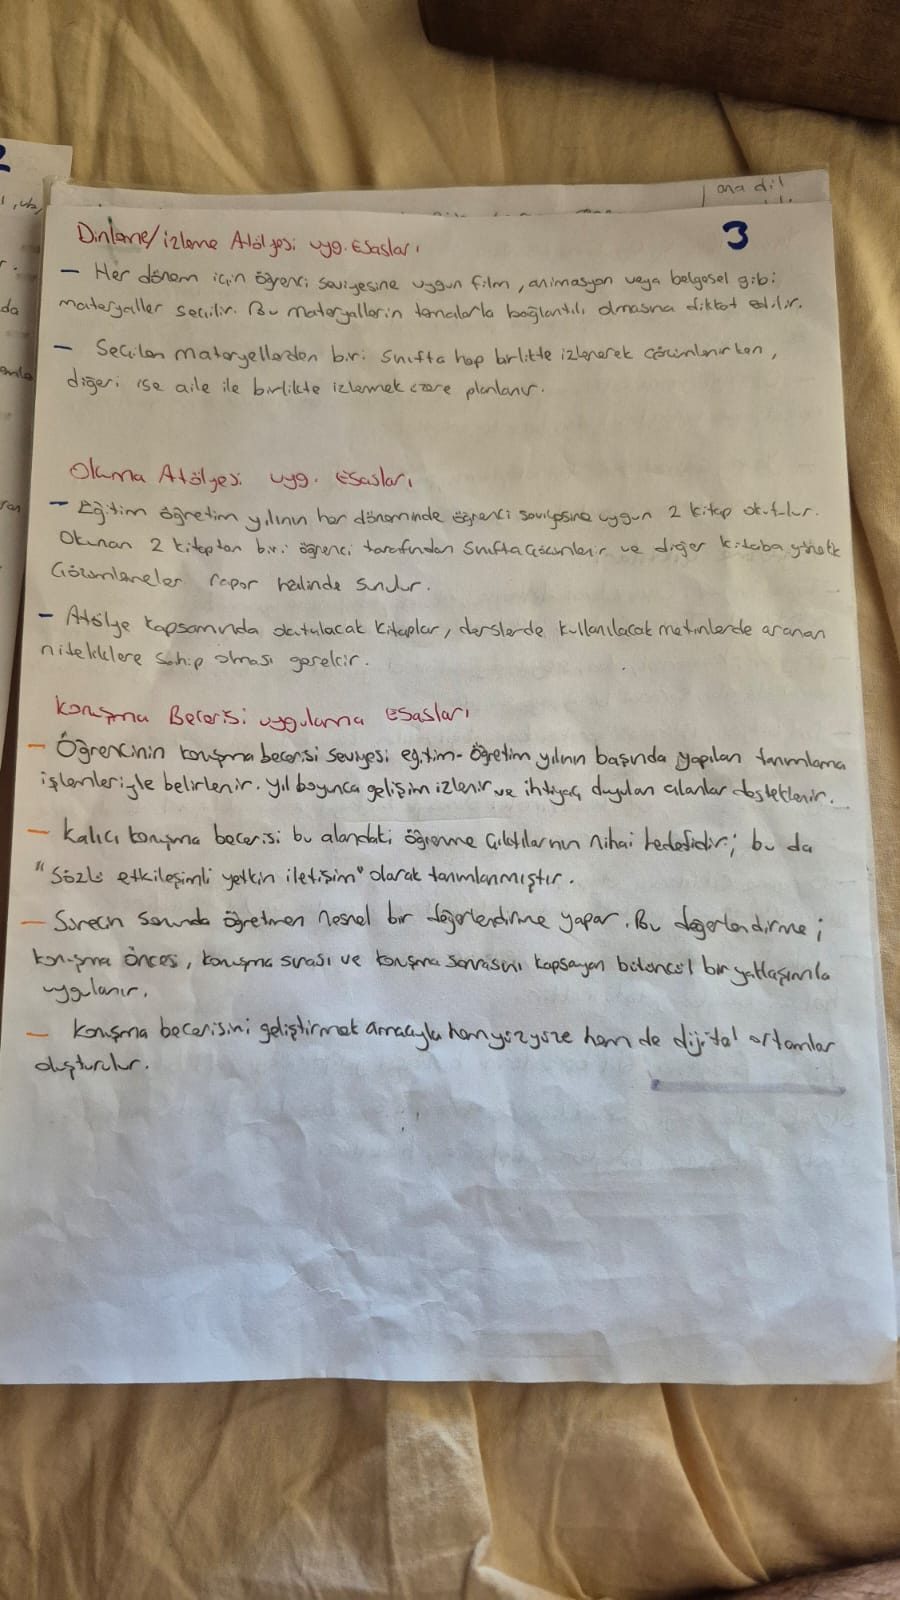 3
Dinleme/izleme Atölyesi uyg. Esasları
— Her dönem için öğrenci seviyesine uygun film, animasyon veya belgesel gibi
materyaller seçilir. Bu materyallerin temalarla bağlantılı olmasına dikkat edilir.
— Seçilen materyellerden biri sınıfta hep birlikte izlenerek çözümlenirken,
diğeri ise aile ile birlikte izlemek üzere planlanır.
Okuma Atölyesi uyg. Esasları
— Eğitim öğretim yılının her döneminde öğrenci seviyesine uygun 2 kitap okutulur.
Okunan 2 kitaptan biri öğrenci tarafından sınıfta çözümlenir ve diğer kitaba yönelik
Çözümlemeler rapor halinde sunulur.
— Atölye kapsamında okutulacak kitaplar, derslerde kullanılacak metinlerde aranan
niteliklere sahip olması gerekir.
Konuşma Becerisi uygulama Esasları
— Öğrencinin konuşma becerisi seviyesi eğitim-öğretim yılının başında yapılan tanımlama
işlemleriyle belirlenir. yıl boyunca gelişim izlenir ve ihtiyaç duyulan alanlar desteklenir.
— Kalıcı konuşma becerisi bu alandaki öğrenme çıktılarının nihai hedefidir; bu da
"Sözlü etkileşimli yetkin iletişim" olarak tanımlanmıştır.
— Sürecin sonunda öğretmen nesnel bir değerlendirme yapar. Bu değerlendirme;
konuşma öncesi, konuşma sırası ve konuşma sonrasını kapsayan bütüncül bir yaklaşımla
uygulanır.
— Konuşma becerisini geliştirmek amacıyla hem yüzyüze hem de dijital ortamlar
oluşturulur.
ana dil
2
da